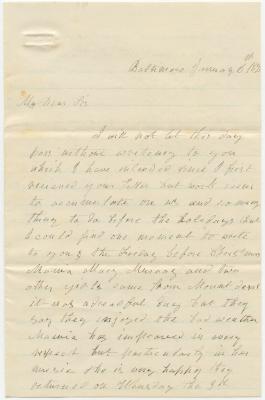 Baltimore January 6th
My Dear Sir
I will not let this day
pass without writeing to you
which I have intended since I first
received your letter but work seems
to accumulate on us and so many
thing to do before the holodays that
I could find one moment to write
to you, the Friday before Christmas
Mamia Mary Murray and two
other girls came from Mount
it was a dreadful day but they
say they enjoyed the bad weather
Mamia has improved in every
respect but particularly in her
she is very happy they
returned on Thursday the 3rd